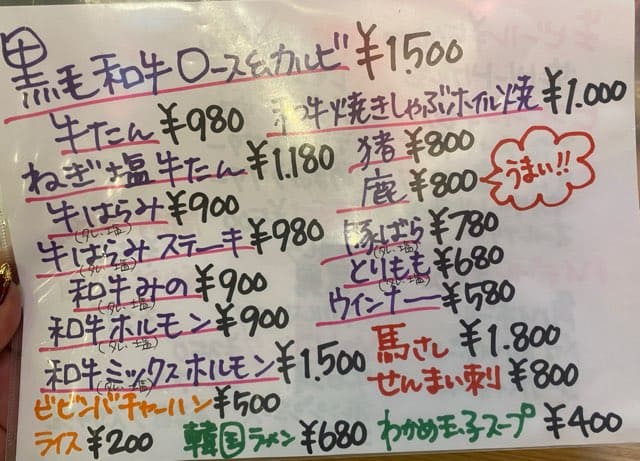 黒毛和牛ロース&カルビ ¥1.500
牛たん ¥980
和牛焼きしゃぶホイル焼 ¥1.000
ねぎ塩牛たん ¥1.180
猪 ¥800
鹿 ¥800
うまい!!
牛はらみ ¥900
(タレ・塩)
牛はらみステーキ ¥980
(タレ・塩)
豚ばら ¥780
(タレ・塩)
とりもも ¥680
(タレ・塩)
和牛みの ¥900
(タレ・塩)
ウインナー ¥580
和牛ホルモン ¥900
(タレ・塩)
馬さし ¥1.800
和牛ミックスホルモン ¥1.500
(タレ・塩)
せんまい刺 ¥800
ビビンバチャーハン ¥500
ライス ¥200
韓国ラーメン ¥680
わかめ玉子スープ ¥400